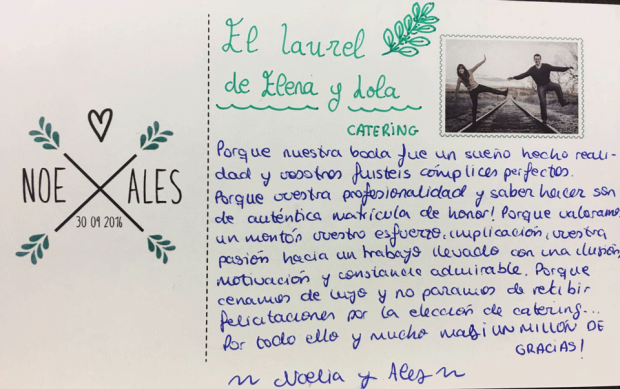 NOE ALES
30 09 2016
El laurel
de Elena y Lola
CATERING
Porque nuestra boda fue un sueño hecho reali-
dad y vosotros fuisteis cómplices perfectos.
Porque vuestra profesionalidad y saber hacer son
de auténtica matrícula de honor! Porque valoramos
un montón vuestro esfuerzo, implicación, vuestra
pasión hacia un trabajo llevado con una ilusión,
motivación y constancia admirable. Porque
cenamos de lujo y no paramos de recibir
felicitaciones por la elección de catering...
Por todo ello y mucho más ¡UN MILLÓN DE
GRACIAS!
Noelia y Ales